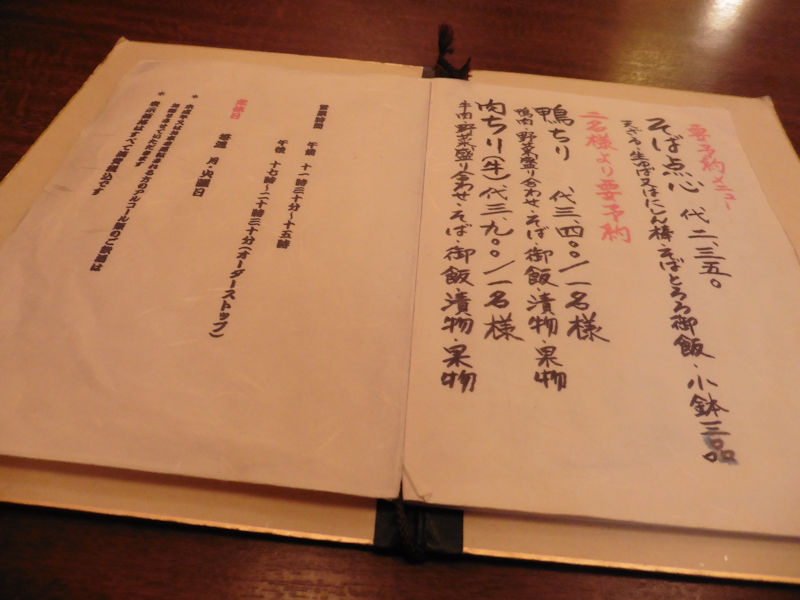 要予約メニュー
そば点心 代二、三五〇
天ざる・生ゆば又はにしん棒・そばとろろ御飯・小鉢三品
二名様より要予約
鴨ちり 代三、四〇〇／一名様
鴨肉・野菜盛り合わせ・そば・御飯・漬物・果物
肉ちり(牛)代三、九〇〇／一名様
牛肉・野菜盛り合わせ・そば・御飯・漬物・果物
営業時間 午前 十一時三十分～十五時
午後 十七時～二十時三十分(オーダーストップ)
定休日 毎週 月・火曜日
＊
＊